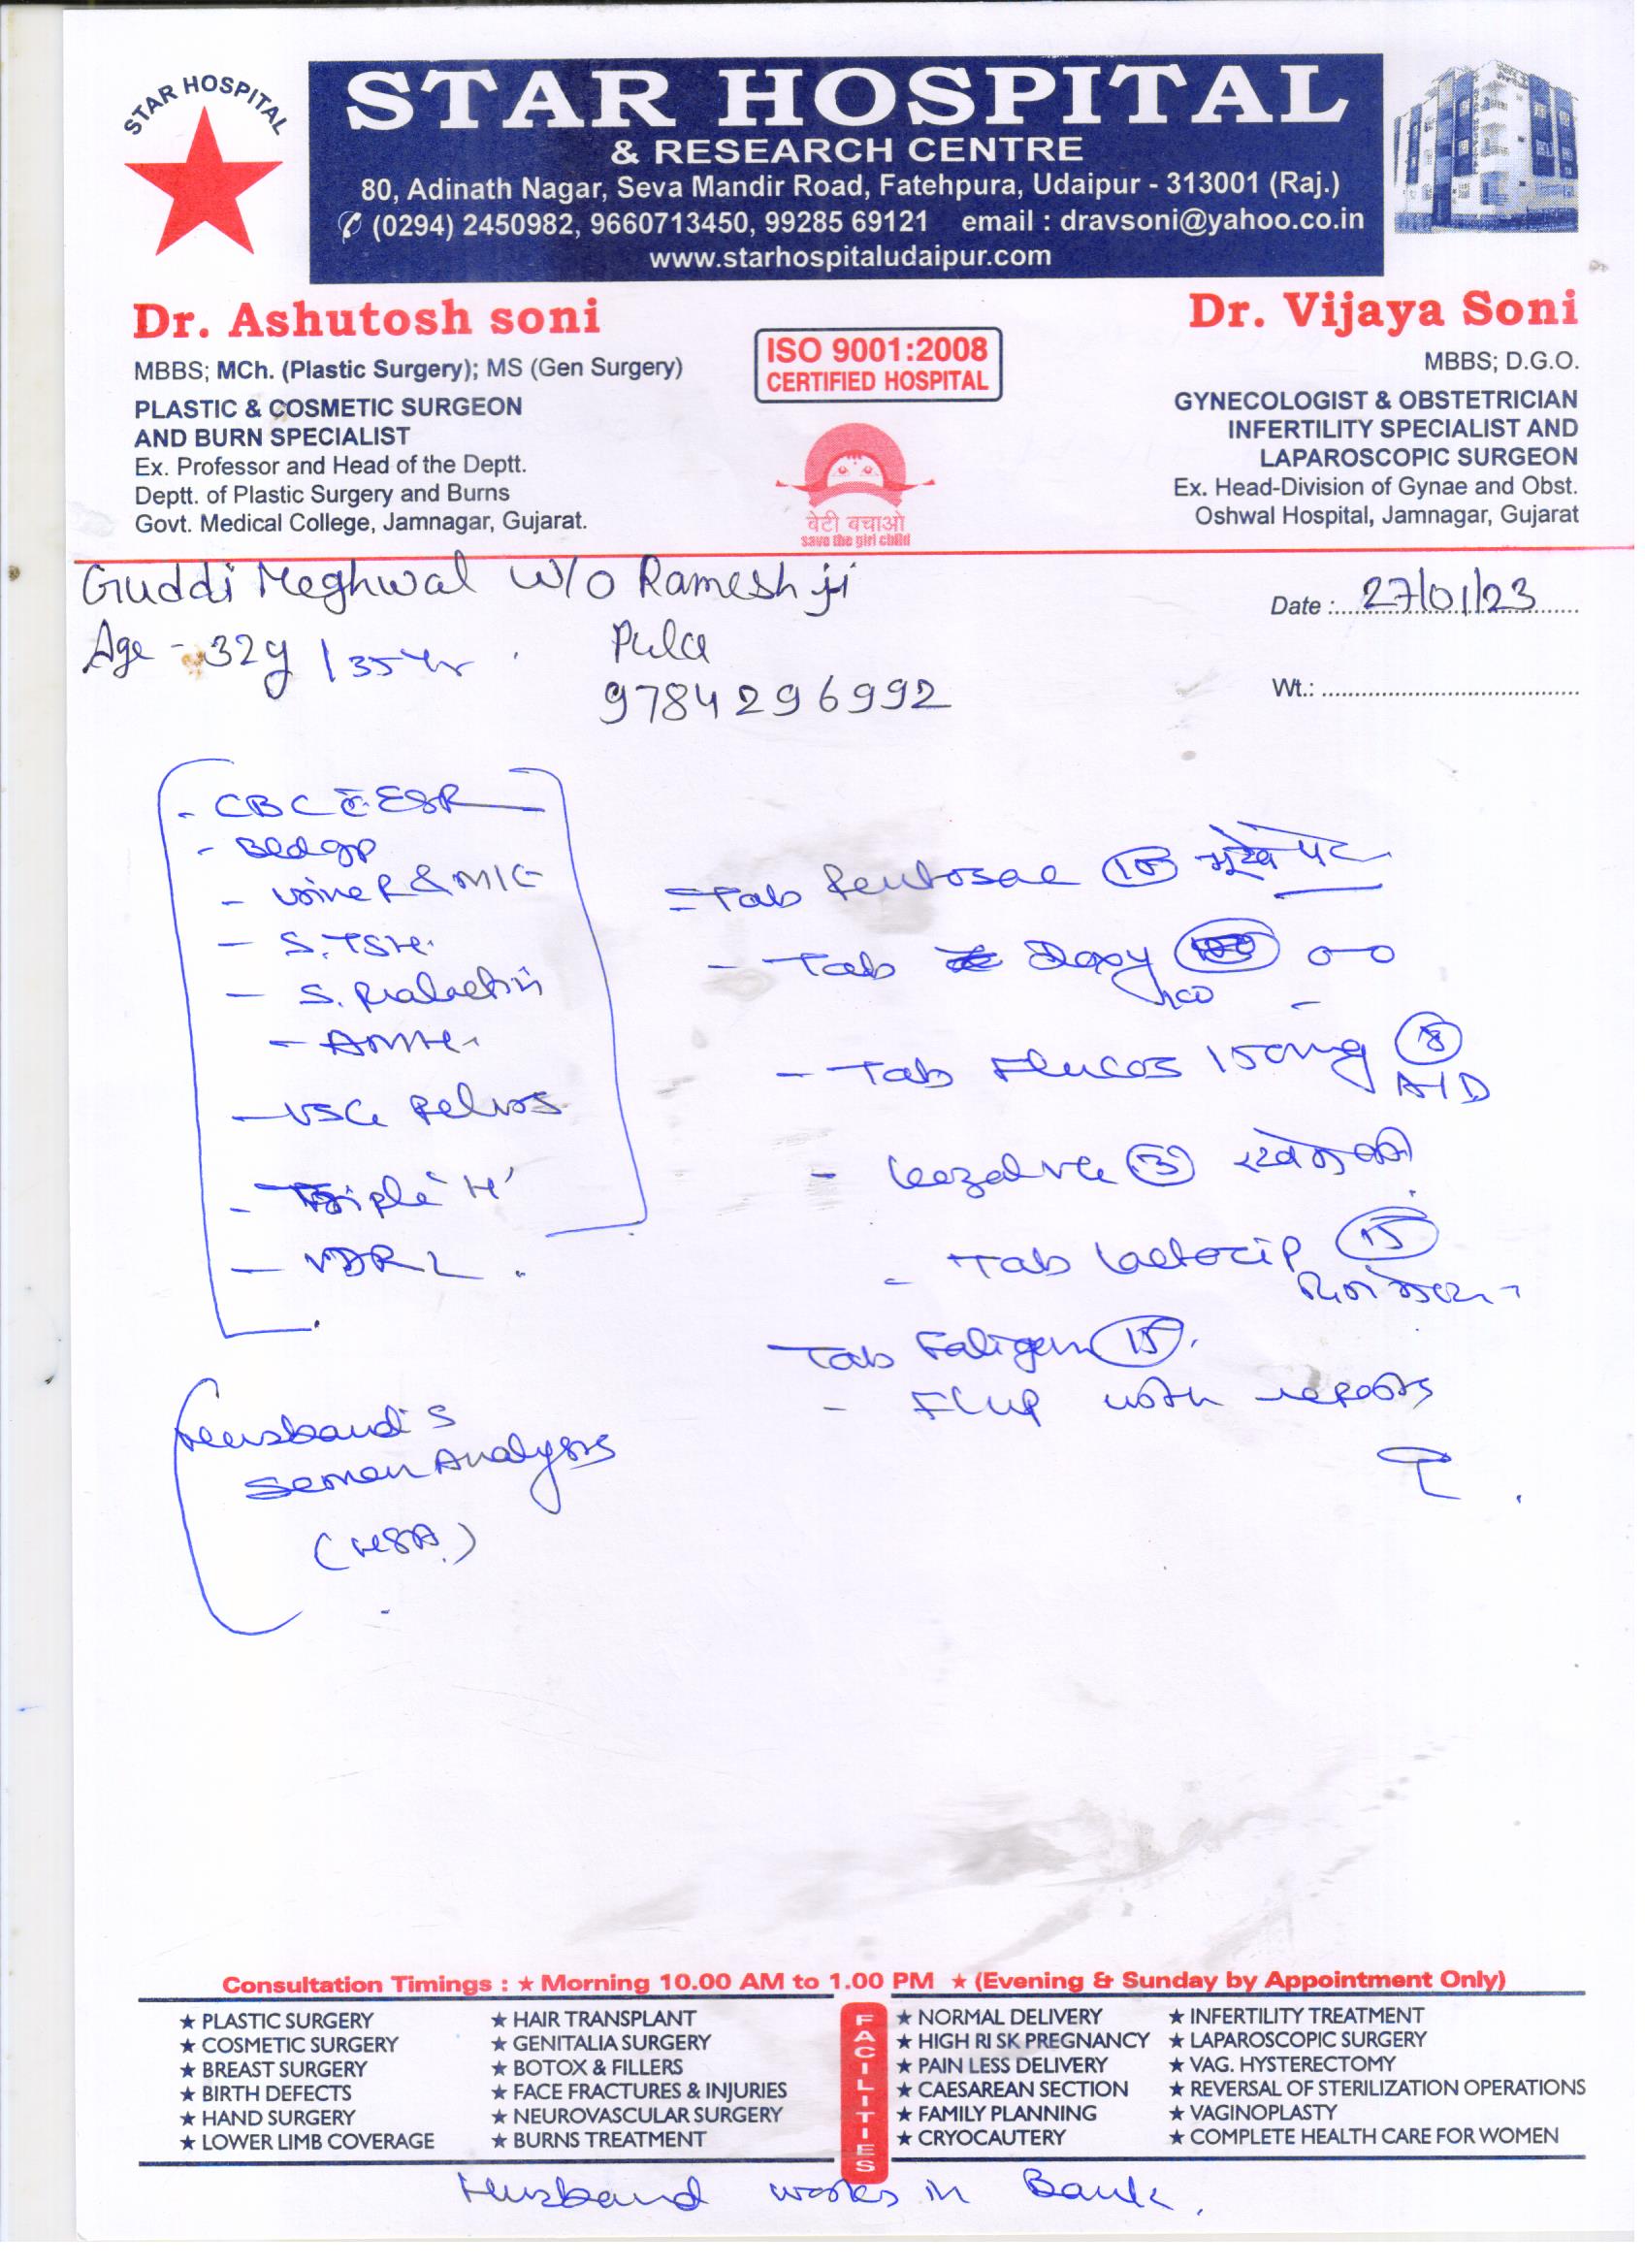 STAR HOSPITAL
STAR HOSPITAL
& RESEARCH CENTRE
80, Adinath Nagar, Seva Mandir Road, Fatehpura, Udaipur - 313001 (Raj.)
(0294) 2450982, 9660713450, 99285 69121 email : dravsoni@yahoo.co.in
www.starhospitaludaipur.com
Dr. Ashutosh soni
MBBS; MCh. (Plastic Surgery); MS (Gen Surgery)
PLASTIC & COSMETIC SURGEON
AND BURN SPECIALIST
Ex. Professor and Head of the Deptt.
Deptt. of Plastic Surgery and Burns
Govt. Medical College, Jamnagar, Gujarat.
ISO 9001:2008
CERTIFIED HOSPITAL
बेटी बचाओ
save the girl child
Dr. Vijaya Soni
MBBS; D.G.O.
GYNECOLOGIST & OBSTETRICIAN
INFERTILITY SPECIALIST AND
LAPAROSCOPIC SURGEON
Ex. Head-Division of Gynae and Obst.
Oshwal Hospital, Jamnagar, Gujarat
Guddi Meghwal W/O Ramesh ji
Date : 27/01/23
Age - 32y / 35 yr
Pula
9784296992
Wt.:
- CBC c̄ ESR
- Bld gp
- Urine R & M/C
- S. TSH
- S. Prolactin
- AMH
- USG Pelvis
- Triple 'H'
- VDRL
Husband's
Semen Analysis
(HSA)
- Tab 10 भूखे पेट
- Tab Doxy
- Tab Flucos 150mg
A/D
- 3
- Tab 15
Tab 15
- F/up with reports
Consultation Timings : ★ Morning 10.00 AM to 1.00 PM ★ (Evening & Sunday by Appointment Only)
★ PLASTIC SURGERY
★ COSMETIC SURGERY
★ BREAST SURGERY
★ BIRTH DEFECTS
★ HAND SURGERY
★ LOWER LIMB COVERAGE
★ HAIR TRANSPLANT
★ GENITALIA SURGERY
★ BOTOX & FILLERS
★ FACE FRACTURES & INJURIES
★ NEUROVASCULAR SURGERY
★ BURNS TREATMENT
FACILITIES
★ NORMAL DELIVERY
★ HIGH RISK PREGNANCY
★ PAIN LESS DELIVERY
★ CAESAREAN SECTION
★ FAMILY PLANNING
★ CRYOCAUTERY
★ INFERTILITY TREATMENT
★ LAPAROSCOPIC SURGERY
★ VAG. HYSTERECTOMY
★ REVERSAL OF STERILIZATION OPERATIONS
★ VAGINOPLASTY
★ COMPLETE HEALTH CARE FOR WOMEN
Husband works in Bank.